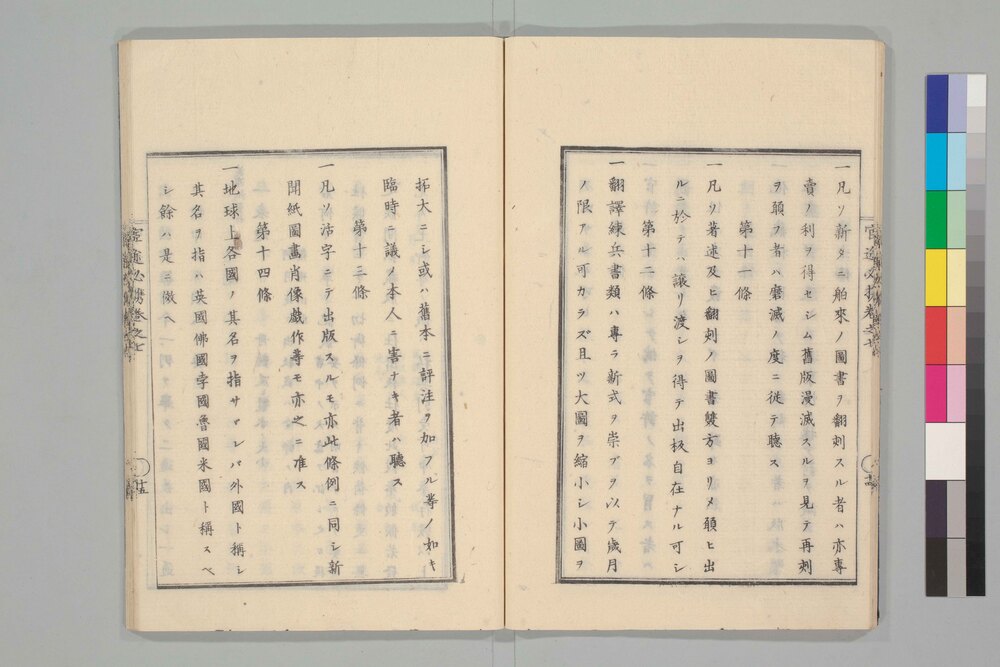 一凡ソ新タニ舶來ノ圖書ヲ翻刻スル者ハ亦專
賣ノ利ヲ得セシム舊版漫滅スルヲ見テ再刻
ヲ願フ者ハ磨滅ノ度ニ從テ聴ス
第十一條
一凡ソ著述及ヒ翻刻ノ圖書雙方ヨリ〆願ヒ出
ルニ於テハ讓リ渡シヲ得テ出板自在ナル可シ
第十二條
一翻譯練兵書類ハ專ラ新式ヲ崇ブヲ以テ歲月
ノ限アル可カラズ且ツ大圖ヲ縮小シ小圖ヲ
拓大ニシ或ハ舊本ニ評注ヲ加フル等ノ如キ
臨時ニ議ノ本人ニ害ナキ者ハ聴ス
第十三條
一凡ソ活字ニテ出版スルモ亦此條例ニ同シ新
聞紙圖畫肖像戯作等モ亦之ニ准ス
第十四條
一地球上各國ノ其名ヲ指サヾレバ外國ト稱シ
其名ヲ指ハ英國佛國孛國魯國米國ト稱スベ
シ餘ハ是ニ傚ヘ
官途必携卷之七